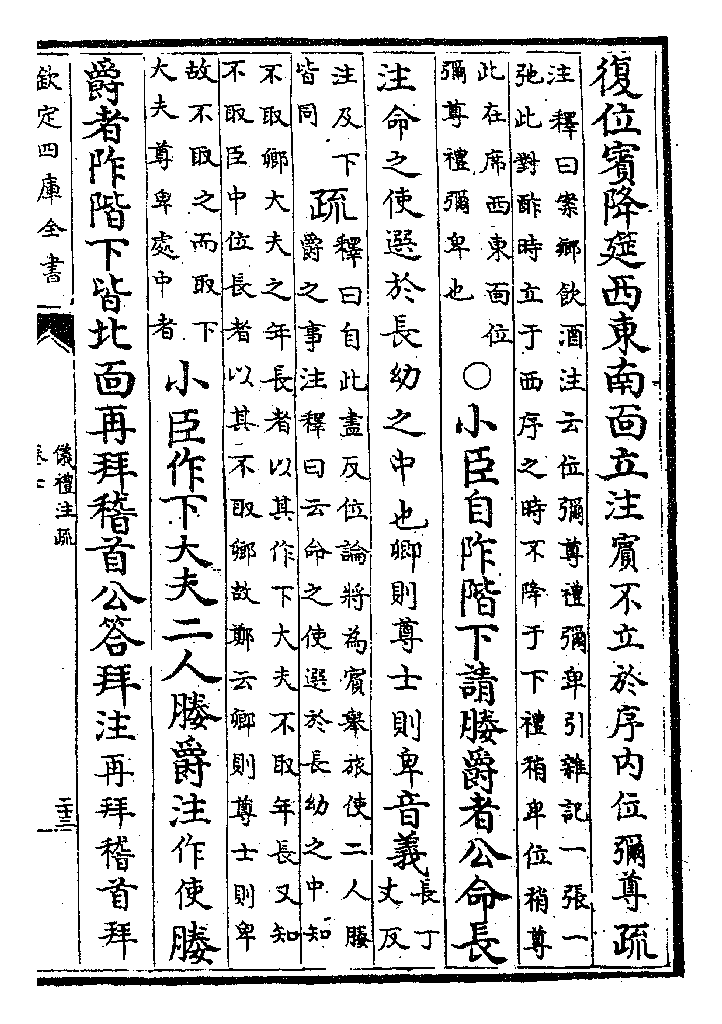 復位賓降筵西東南面立注賓不立於序内位彌尊疏
注釋曰案鄉飲酒注云位彌尊禮彌卑引雜記一張一
弛此對酢時立于西序之時不降于下禮稍卑位稍尊
此在席西東面位
彌尊禮彌卑也
○小臣自阼階下請媵爵者公命長
注命之使選於長幼之中也卿則尊士則卑音義
長丁
丈反
注及下
皆同
疏
釋曰自此盡反位論將為賓舉旅使二人媵
爵之事注釋曰云命之使選於長幼之中知
不取卿大夫之年長者以其作下大夫不取年長又知
不取臣中位長者以其不取卿故鄭云卿則尊士則卑
故不取之而取下
大夫尊卑處中者
小臣作下大夫二人媵爵注作使媵
爵者阼階下皆北面再拜稽首公答拜注再拜稽首拜
欽定四庫全書
儀禮注疏
二十三